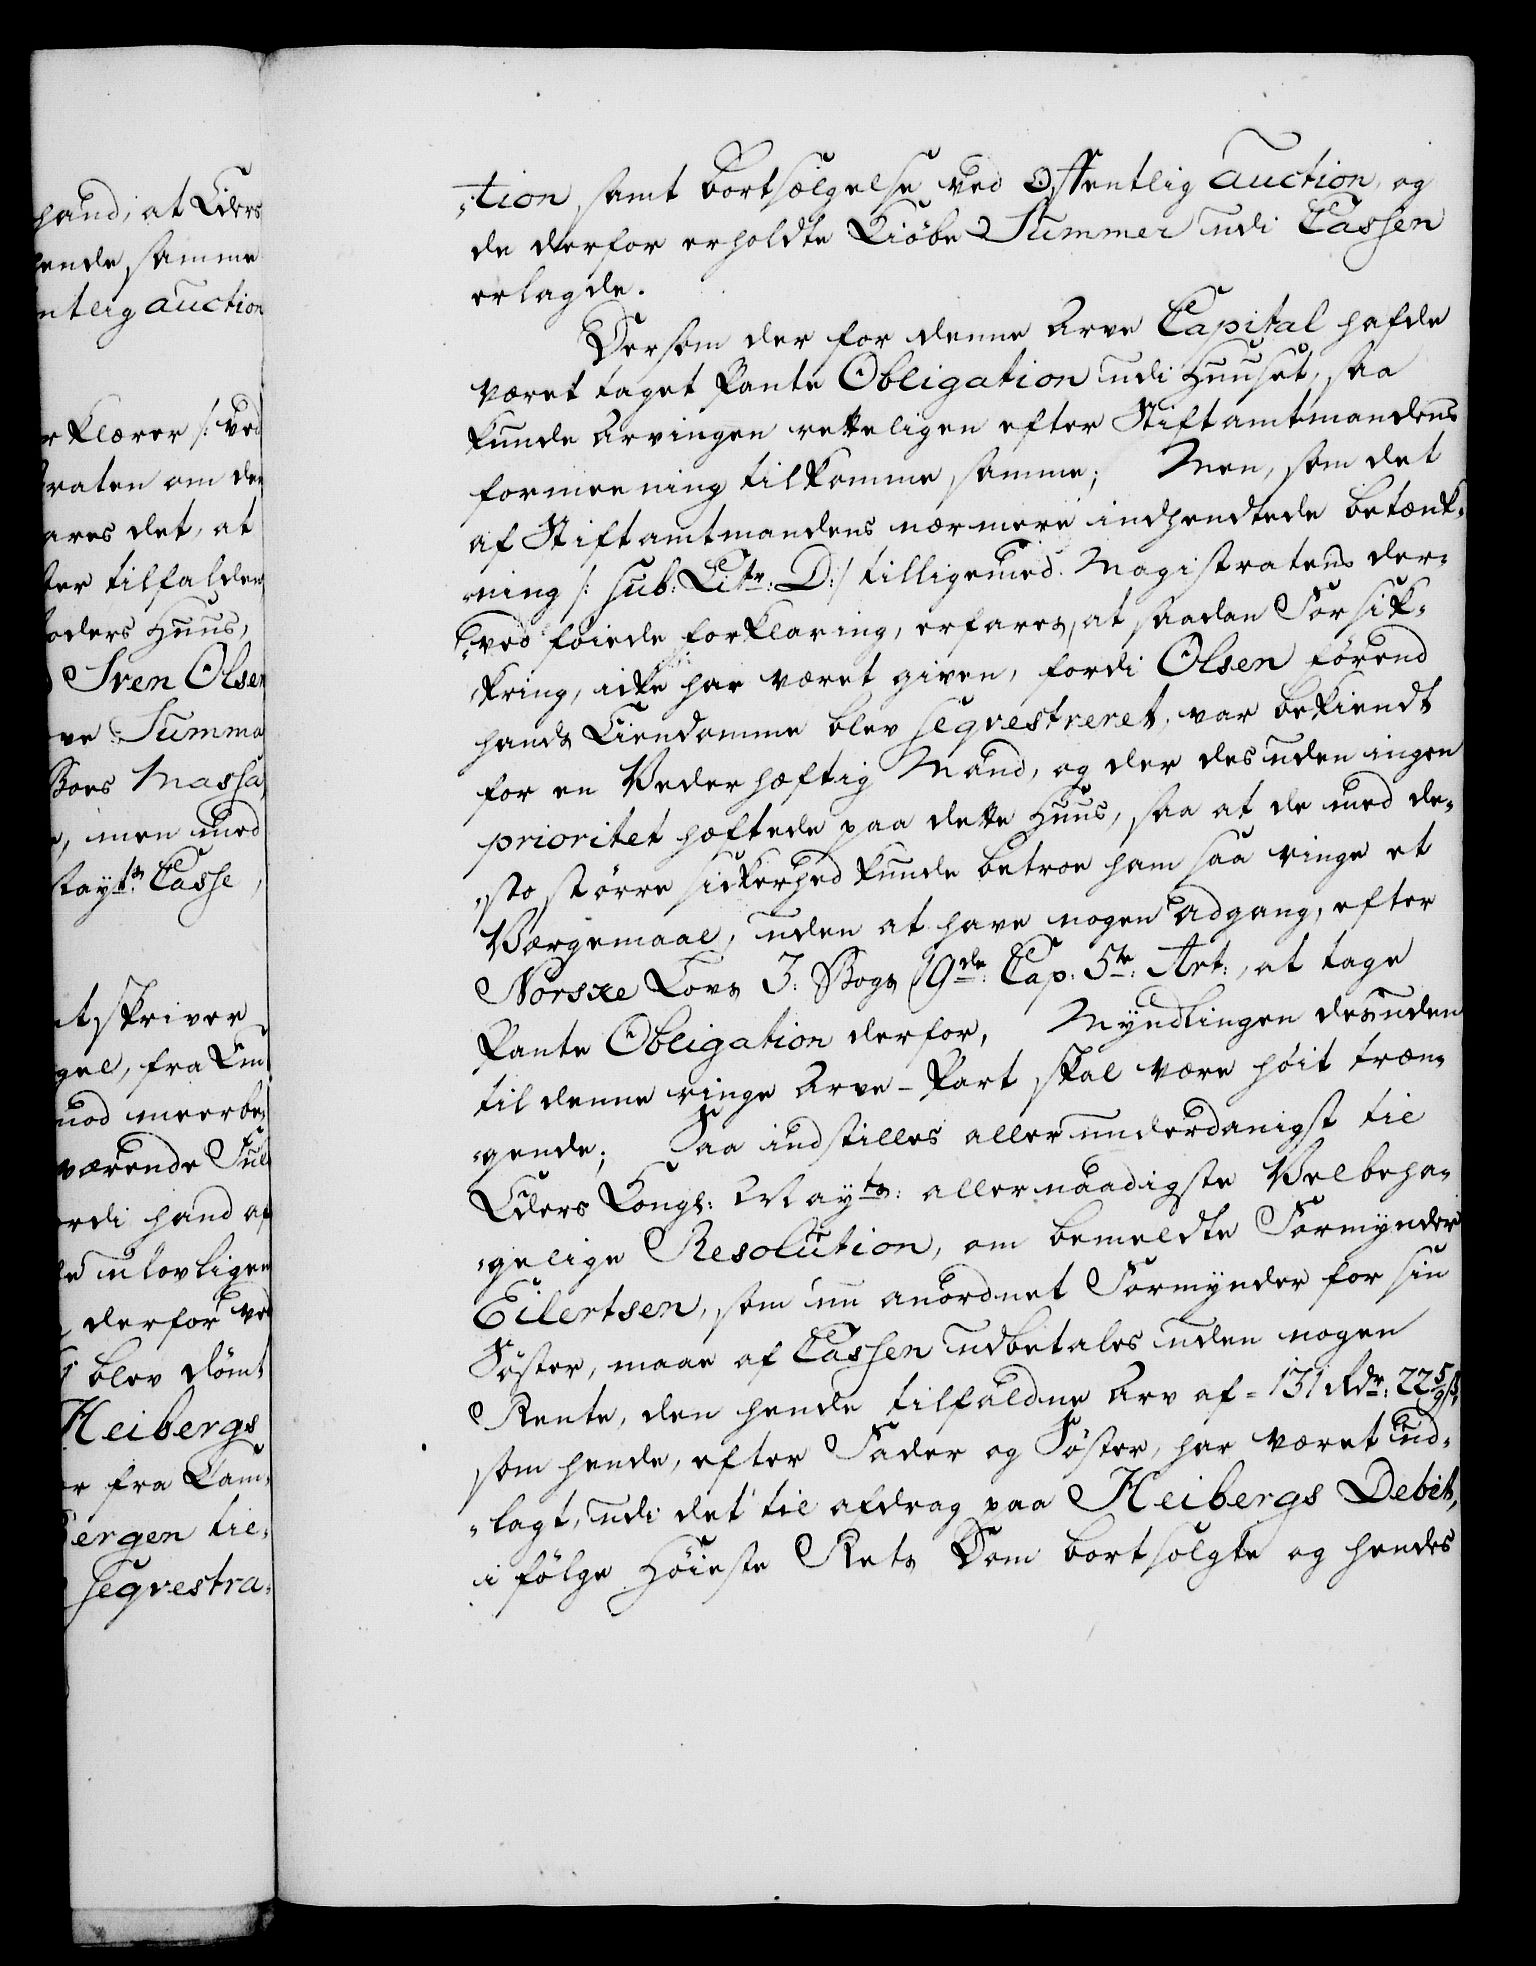 hand, at Eders
hende samme
ntlig auction
rklærer /: ved
raten om den
ares det, at
ter tilfalden
oders Huus,
Sven Olsen
ve Summa
Boes Massa
, men med
Mayts Casse,
t skriver
gel, fra
mod meerbe-
værende
ordi hand af
le ulovligen
derfor ved
blev dömt
Heibergs
er fra Cam-
Bergen til-
Seqvestra-
-tion, samt bortsælgelse ved Offentlig Auction, og
de derfor erholdte Kiöbe Summer udi Cassen
erlagde.
Dersom der for denne Arve Capital hafde
været taget Pante Obligation udi Huuset, saa
kunde Arvingen retteligen efter Stiftamtmandens
formeening tilkomme samme; Men, som det
af Stiftamtmandens nærmere indhendtede betænk-
-ning /: sub. Litr: D:/ tilligemed Magistratens der-
-ved föiede forklaring, erfares, at saadan Forsik-
-kring, icke har været given, fordi Olsen förend
hands Eiendomme blev seqvestreret, var bekiendt
for en Vederhæftig Mand, og der desuden ingen
prioritet hæftede paa dette Huus, saa at de med de-
-sto större sickerhed kunde betroe ham saa ringe et
Værgemaal, uden at have nogen adgang, efter
Norske Lovs 3: Bogs 19de: Cap: 5te: Art:, at tage
Pante Obligation derfor, Myndlingen desuden
til denne ringe Arve-Part skal være höit træn-
-gende; Saa indstilles allerunderdanigst til
Eders Kongl: Mayts: allernaadigste Velbeha-
-gelige Resolution, om bemeldte Formynder
Eilertsen, som nu anordnet Formynder for sin
Söster, maae af Cassen udbetales uden nogen
Rente, den hende tilfaldne Arv af = 131 Rdr: 22 5/9 ß,
som hende, efter Fader og Söster, har været ud-
-lagt, udi det til afdrag paa Heibergs Debit,
i fölge Höieste Rets Dom bortsolgte og hendes